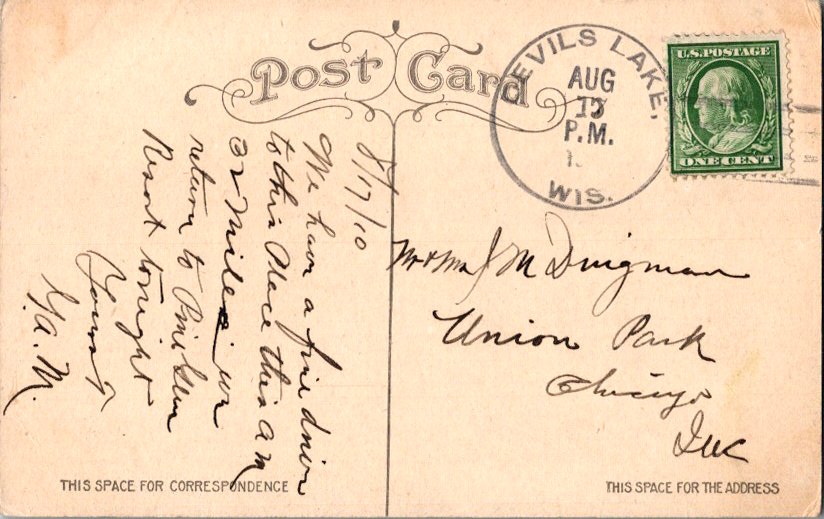 Post Card
DEVILS LAKE,
AUG
P.M.
WIS.
U.S. POSTAGE
ONE CENT
8/17/10
We have a fine drive
to this Place this am
32 Miles we
return to Pine Glen
Resort tonight
Yours
G.A.M.
Mr & Mrs J M Dingman
Union Park
Chicago
Ill
THIS SPACE FOR CORRESPONDENCE
THIS SPACE FOR THE ADDRESS